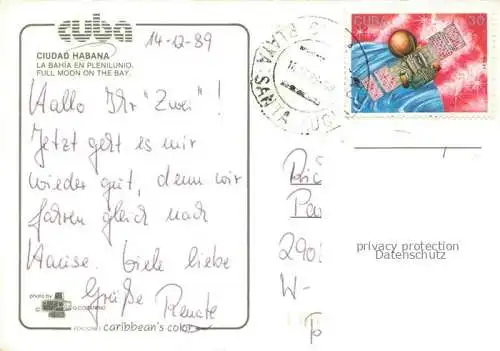 cuba
14-12-89
CIUDAD HABANA
LA BAHIA EN PLENILUNIO.
FULL MOON ON THE BAY.
Hallo Ihr "Zwei"!
Jetzt geht es mir
wieder gut, denn wir
fahren gleich nach
Hause. Viele liebe
Grüße Renate
photo by
EDICIONES caribbean's color
CUBA 30
PLAYA SANTA
290
W-
privacy protection
Datenschutz